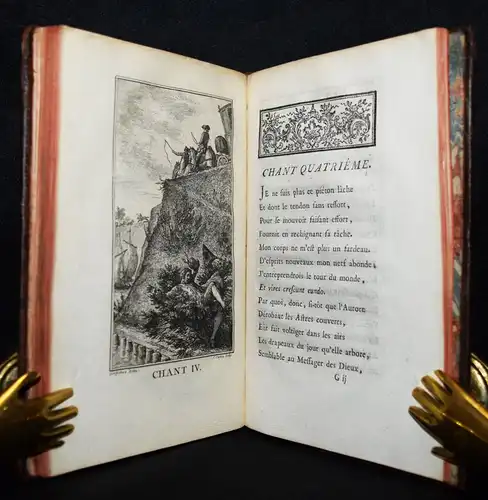 CHANT IV.
CHANT QUATRIÈME.
JE ne suis plus ce piéton lâche
Et dont le tendon sans ressort,
Pour se mouvoir faisant effort,
Fournit en rechignant sa tâche.
Mon corps ne m'est plus un fardeau.
D'esprits nouveaux mon nerf abonde,
J'entreprendrois le tour du monde,
Et vires crescunt eundo.
Par quoi, donc, si-tôt que l'Aurore
Dérobant les Astres couverts,
Eut fait voltiger dans les airs
Les drapeaux du jour qu'elle arbore,
Semblable au Messager des Dieux,
G ij